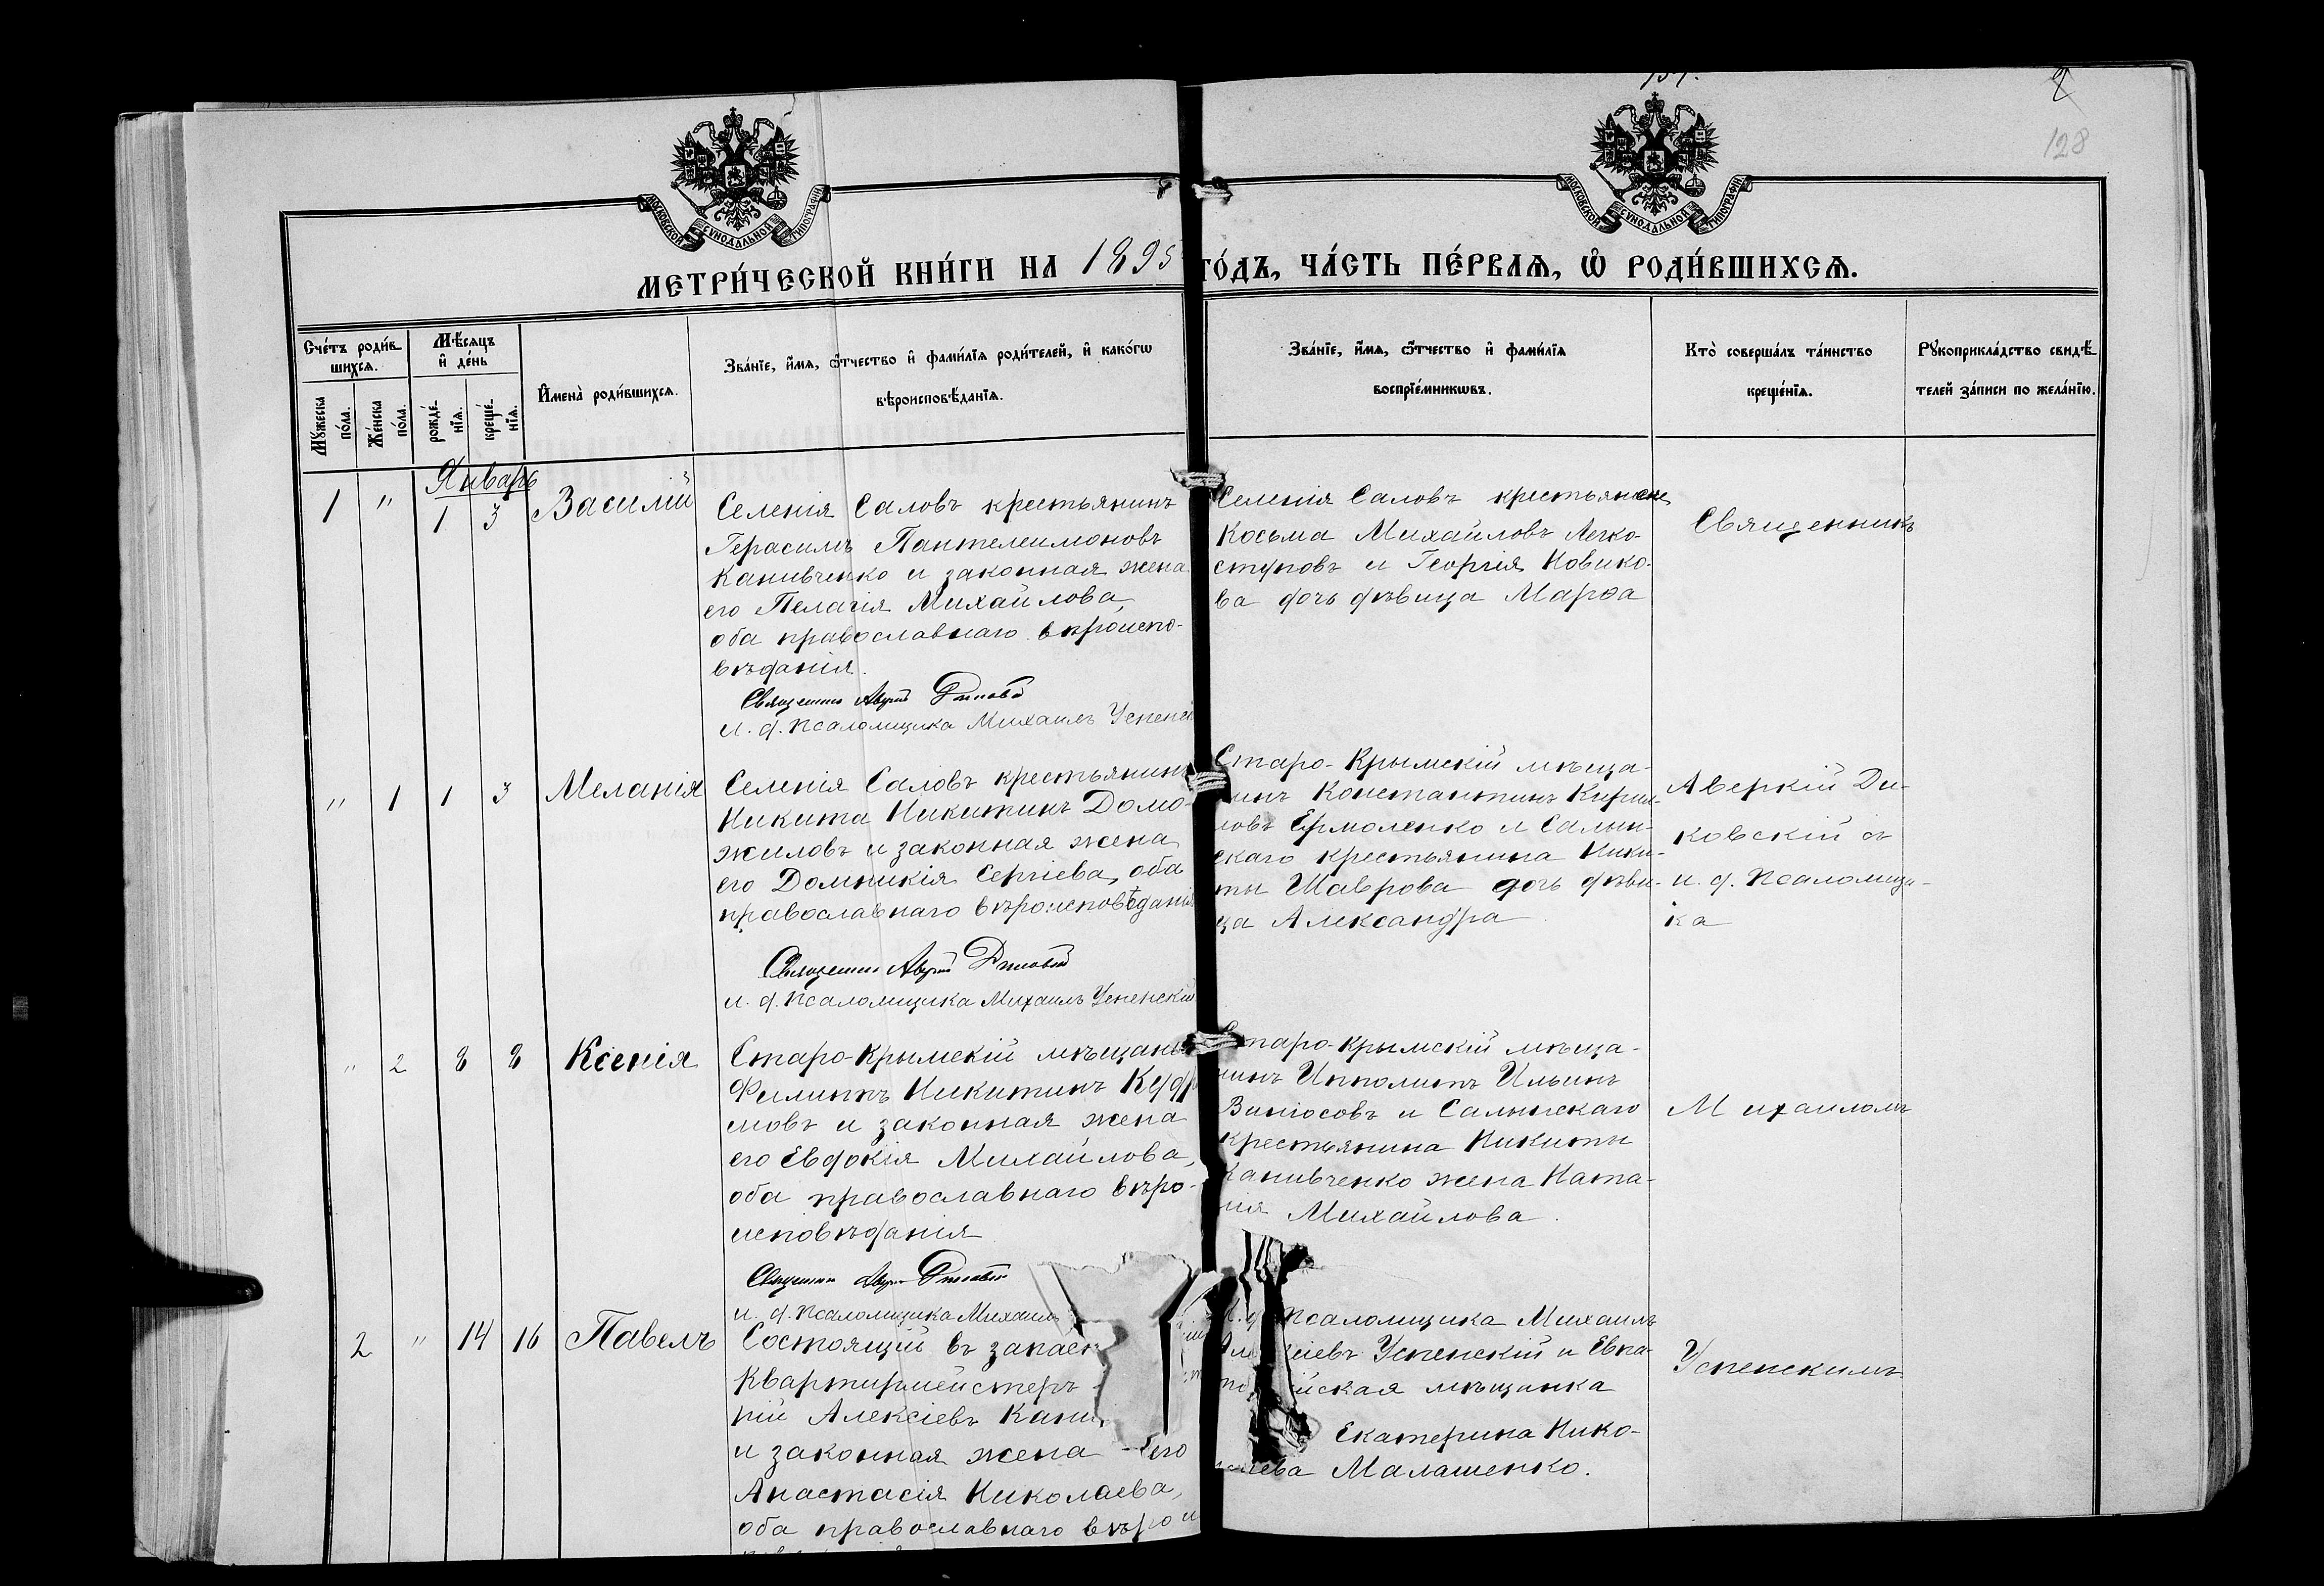 128
МОСКОВСКОЙ СѴНОДАЛЬНОЙ ТИПОГРАФІИ
МОСКОВСКОЙ СѴНОДАЛЬНОЙ ТИПОГРАФІИ
МЕТРИ́ЧЕСКОЙ КНИ́ГИ НА 1895 ГО́ДЪ, ЧА́СТЬ ПЕ́РВАѦ, Ѡ҆ РОДИ́ВШИХСѦ.
Сче́тъ роди́в-
шихсѧ.
Мꙋ́жеска по́ла.
Же́нска по́ла.
Мѣ́сѧцъ
и҆ де́нь
рожде́-
нїѧ.
креще́-
нїѧ.
И҆мена̀ роди́вшихсѧ.
Зва́нїе, и҆́мѧ, ѻ҆́тчество и҆ фами́лїѧ роди́телей, и҆ како́гѡ
вѣроисповѣ́данїѧ.
Зва́нїе, и҆́мѧ, ѻ҆́тчество и҆ фами́лїѧ
воспрїе́мникѡвъ.
Кто̀ соверша́лъ та́инство
креще́нїѧ.
Рꙋкоприкла́дство свидѣ́-
телей за́писи по жела́нїю.
Январь
1 " 1 3 Василій
Селенія Саловъ крестьянинъ
Герасимъ Пантелеимоновъ
Канивченко и законная жена
его Пелагія Михайлова,
оба православнаго вѣроиспо-
вѣданія.
и. д. псаломщика Михаилъ
Селенія Саловъ
Косьма Михайловъ Легко-
ступовъ и Георгія Новико-
ва дочь дѣвица Марѳа
Священникъ
" 1 1 3 Меланія
Селенія Саловъ крестьянинъ
Никита Никитинъ Домо-
жиловъ и законная жена
его Домникія Сергіева, оба
православнаго вѣроисповѣданія
и. д. псаломщика Михаилъ Успенскій
Старо-Крымскій мѣща-
нинъ Константинъ Кирил-
ловъ Ермоленко и Салын-
скаго крестьянина Ники-
ты Шаврова дочь дѣви-
ца Александра
Аверкій Ди-
ковскій съ
и. д. псаломщи-
ка
" 2 8 8 Ксенія
Старо-Крымскій мѣщанинъ
Филиппъ Никитинъ
и законная жена
его Евдокія Михайлова,
оба православнаго вѣро-
исповѣданія
и. д. псаломщика Михаилъ
Старо-Крымскій мѣща-
нинъ Ипполитъ Ильинъ
и Салынскаго
крестьянина Никиты
Канивченко жена Ната-
лія Михайлова.
Михаиломъ
2 " 14 16 Павелъ
Состоящій въ запасѣ
Квартирмейстеръ
рій Алексіевъ
и законная жена его
Анастасія Николаева,
оба православнаго вѣрои
И. д. псаломщика Михаилъ
Алексіевъ Успенскій и Евпа-
торійская мѣщанка
Екатерина Нико-
лаева Малашенко.
Успенскимъ